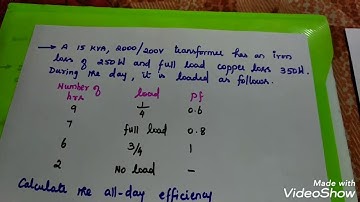 → A 15 KVA, 2000/200V transformer has an iron
loss of 250W and full load copper loss 350W.
During the day, it is loaded as follows.
Number of hrs load pf
9 1/4 0.6
7 full load 0.8
6 3/4 1
2 No load -
Calculate the all-day efficiency
Made with
VideoShow